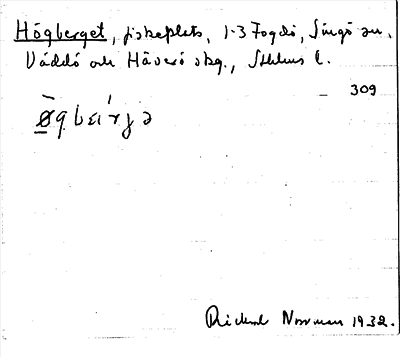 Högberget, fiskeplats, 1-3 Fogdö, Singö sn.
Väddö och Häverö skg., Sthlms l.
309
Richard Norrman 1932.